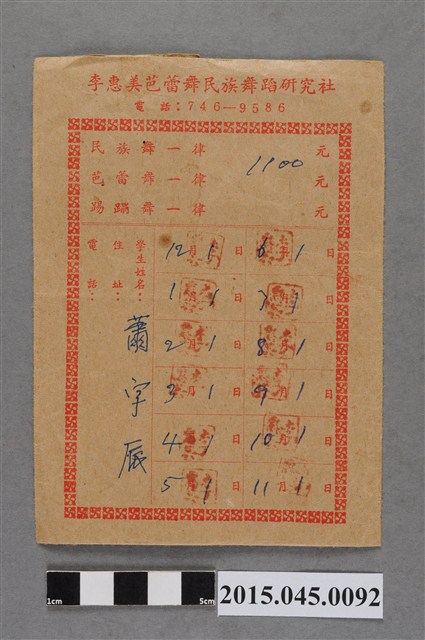 李惠美芭蕾舞民族舞蹈研究社
電話：746—9586
民族舞一律 1100 元
芭蕾舞一律 元
踢躂舞一律 元
學生姓名： 蕭宇辰
住址：
電話：
12月1日 6月1日
1月1日 7月1日
2月1日 8月1日
3月1日 9月1日
4月1日 10月1日
5月1日 11月1日
1cm 5cm
2015.045.0092